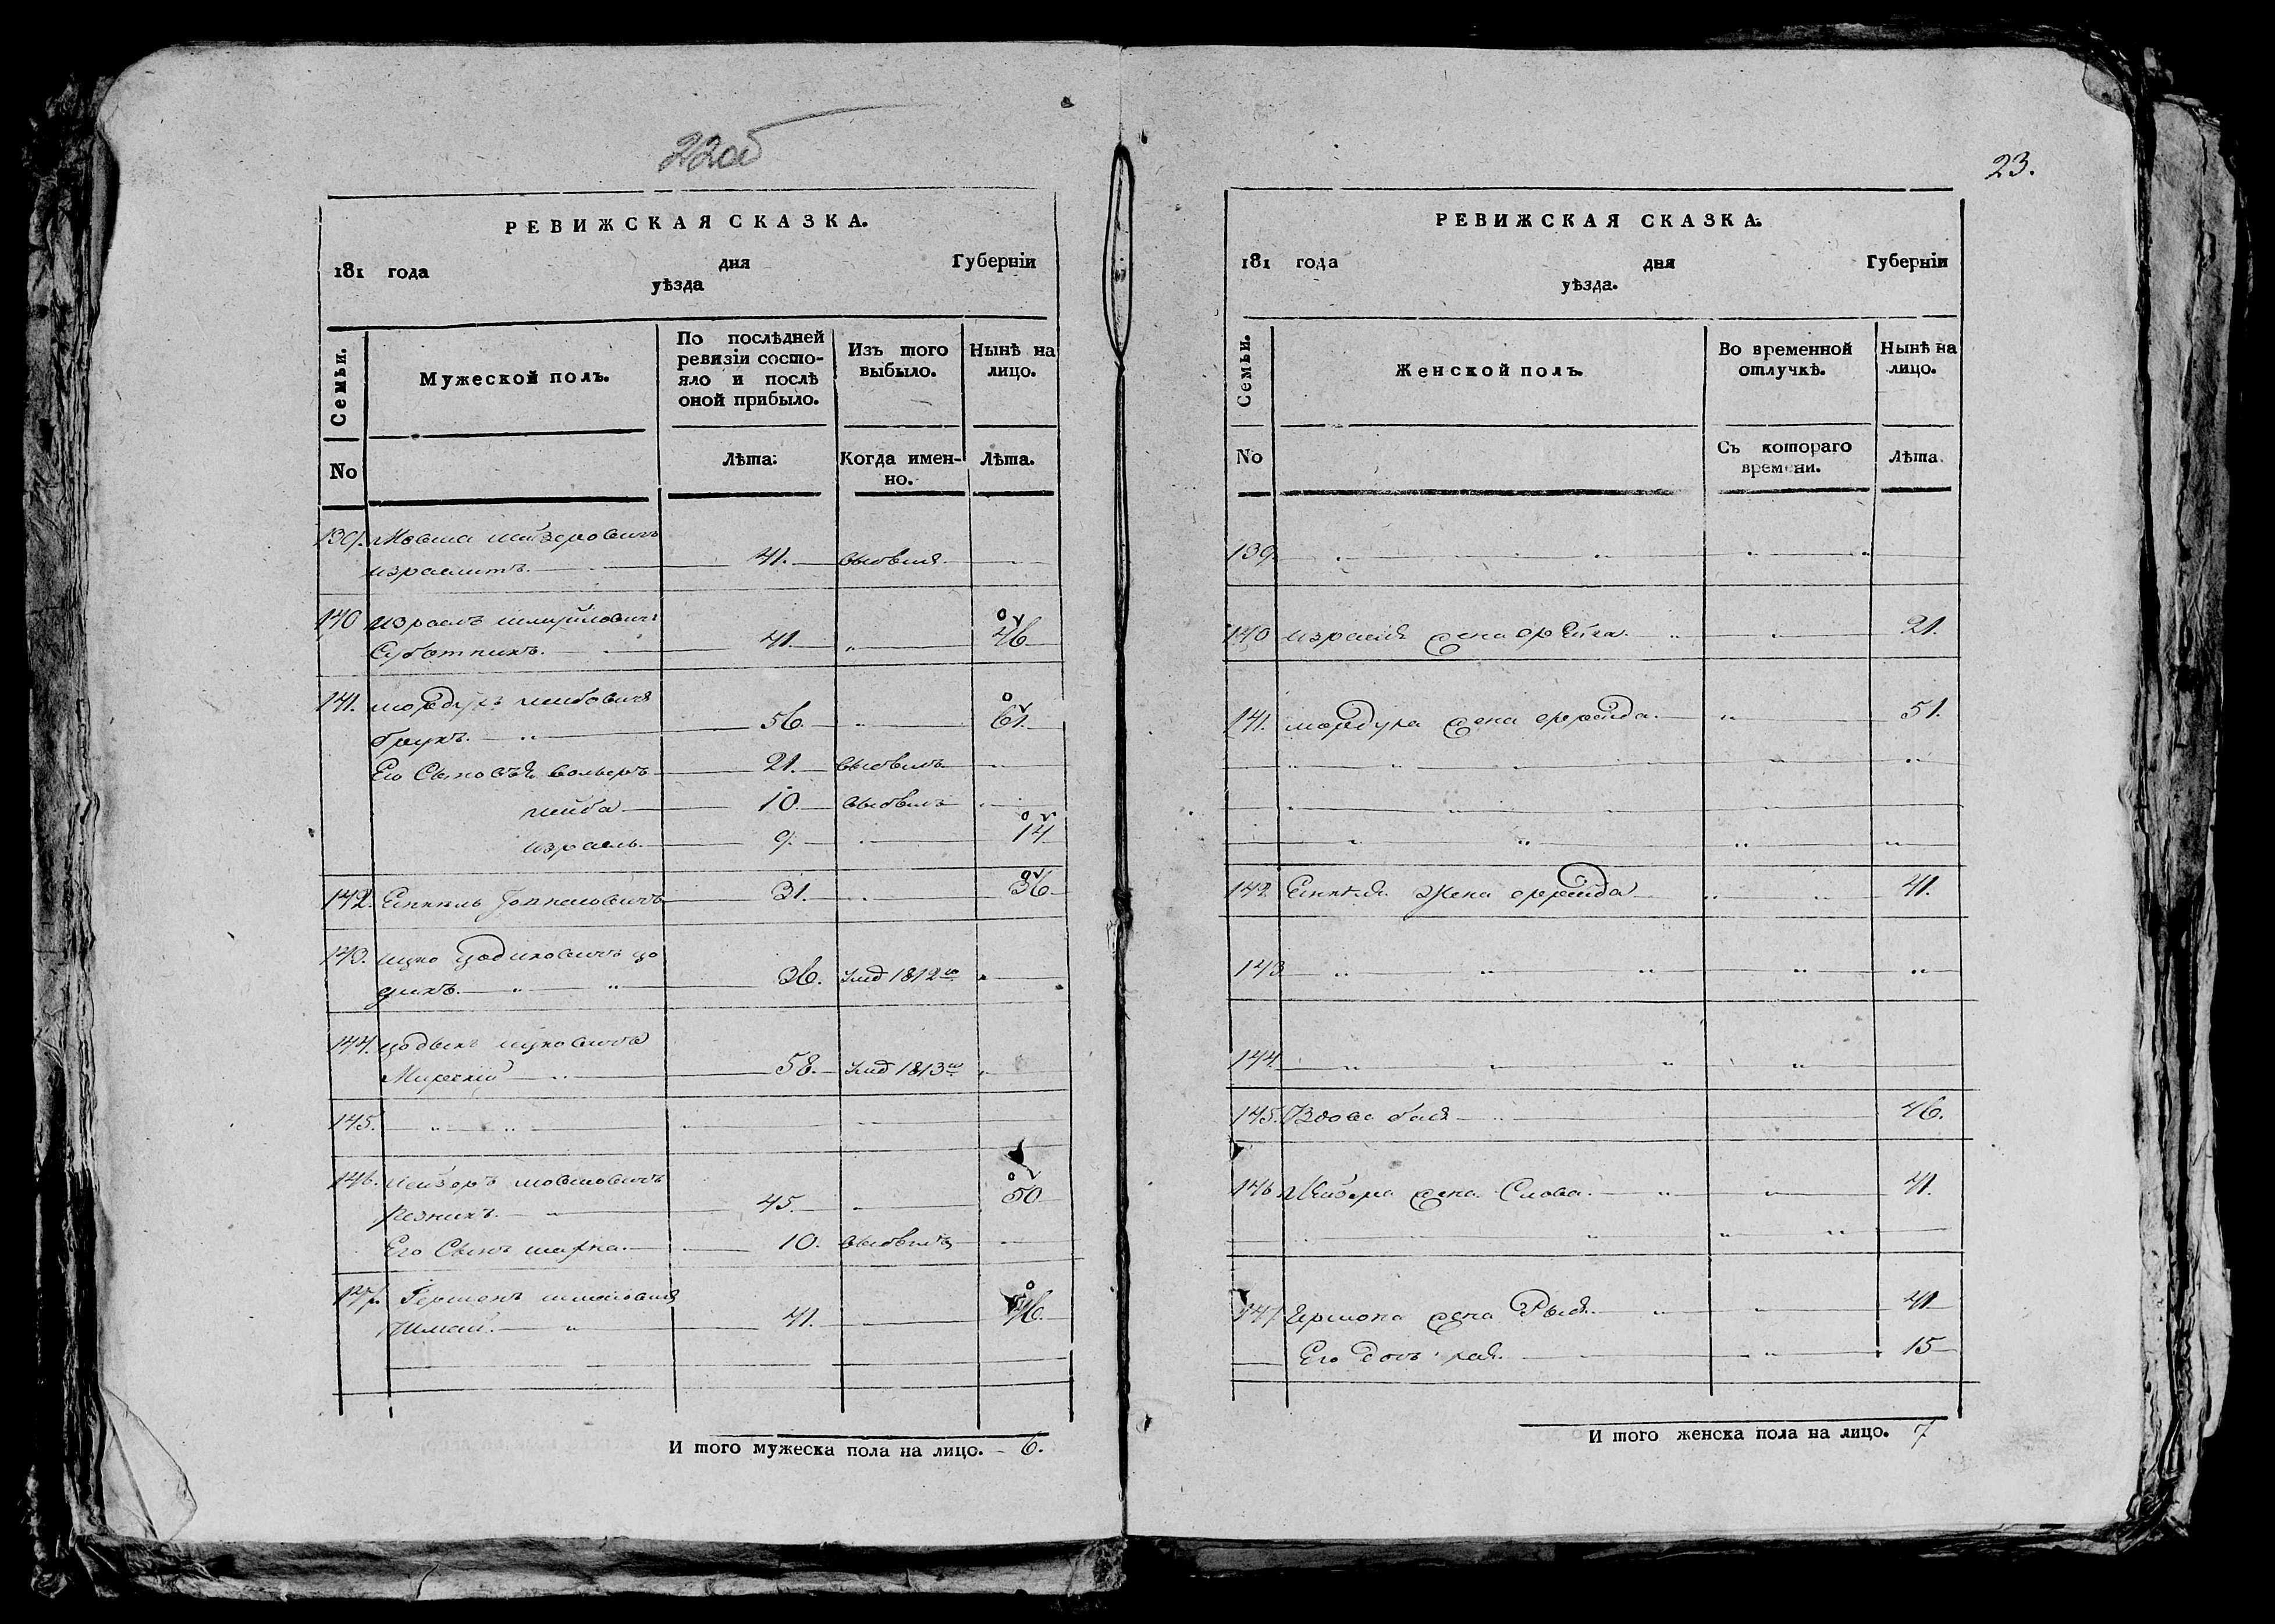 22об
РЕВИЖСКАЯ СКАЗКА.
181 года дня Губерніи
уѣзда
Семьи.
Мужеской полъ.
По послѣдней ревизіи состо-
яло и послѣ оной прибыло.
Изъ того выбыло.
Нынѣ на лицо.
No
Лѣта.
Когда имен-
но.
Лѣта.
139. Мовша Лейзеровичъ
израелитъ. 41. выбылъ
140 Израель Шмуйловичъ
Суботникъ. 41. 46
141. Мордухъ Лейбовичъ
брукъ. 56. 61.
Его Сыновья 21. выбылъ
лейба 10. выбылъ
израель. 9. 14
142. 31. 36
143. Ицко Цодиковичъ цо
дикъ. 36. умд 1812го
144. цодикъ ицковичъ
Мирскій 58. умд 1813го
145.
146. Лейзеръ мовшовичъ
резникъ. 45. 50
Его Сынъ 10. выбылъ
147. Гершонъ
41. 46.
И того мужеска пола на лицо. 6.
23.
РЕВИЖСКАЯ СКАЗКА.
181 года дня Губерніи
уѣзда.
Семьи.
Женской полъ.
Во временной отлучкѣ.
Нынѣ на лицо.
No
Съ котораго времени.
Лѣта.
139.
140 израеля жена фрейга. 21.
141. мордуха жена фрейда. 51.
142. жена фрейда 41.
143
144
145. Вдова бася 46.
146 Лейзера жена Слова. 41.
147 Гершона жена Рыся. 41
Его дочь хая. 15
И того женска пола на лицо. 7